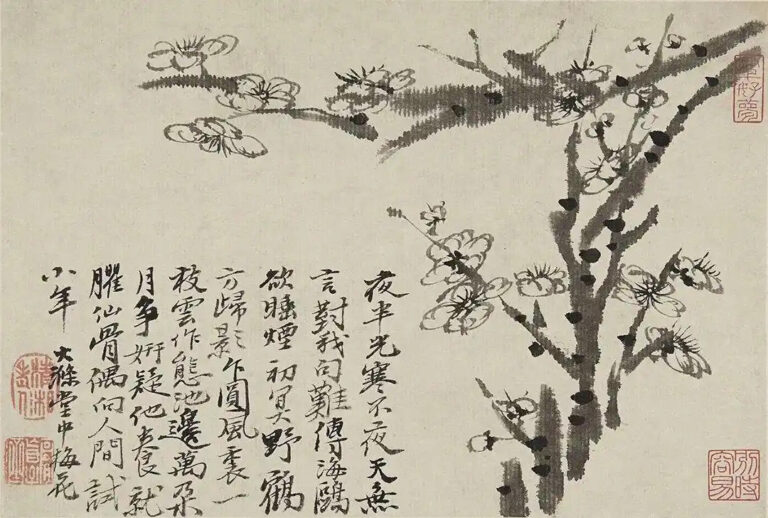 夜半光寒不夜天無
言對我句難傳海鷗
欲睡煙初冥野鶴
方歸影乍圓風裏一
枝雲作態池邊萬朶
月爭妍疑他養就
臞仙骨偶向人間試
小年 大滌堂中梅花
別時容易